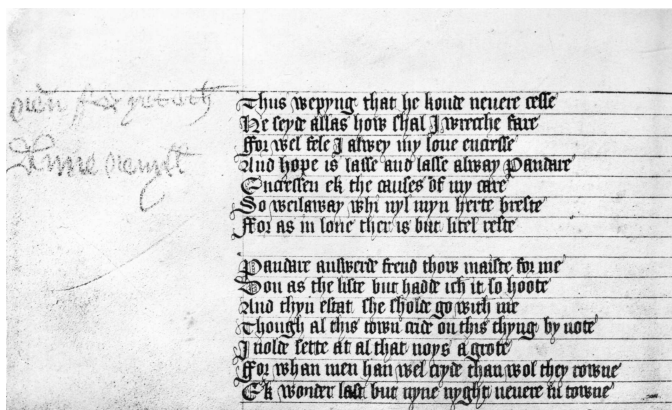 neuer forgeteth
Thus wepyng that he koude neuere cesse
He seyde allas how shal I wrecche fare
ffor wel fele I alwey my loue encresse
And hope is lasse and lasse alway Pandare
Encressen ek the causes of my care
So weilaway whi nyl myn herte breste
ffor as in loue ther is but litel reste
Pandare answerde frend thow maiste for me
Don as the liste but hadde ich it so hoote
And thyn estat she sholde go with me
Though al this town cride on this thyng by note
I nolde sette at al that noys a grote
ffor whan men han wel cryde than wol they rowne
Ek wonder last but nyne nyght neuere in towne